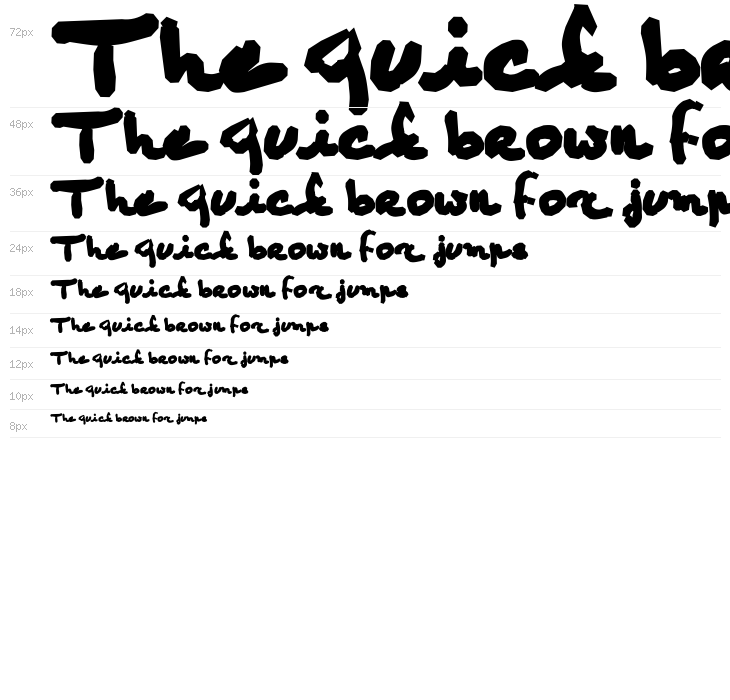 72px The quick b
48px The quick brown fo
36px The quick brown for jump
24px The quick brown for jumps
18px The quick brown for jumps
14px The quick brown for jumps
12px The quick brown for jumps
10px The quick brown for jumps
8px The quick brown for jumps